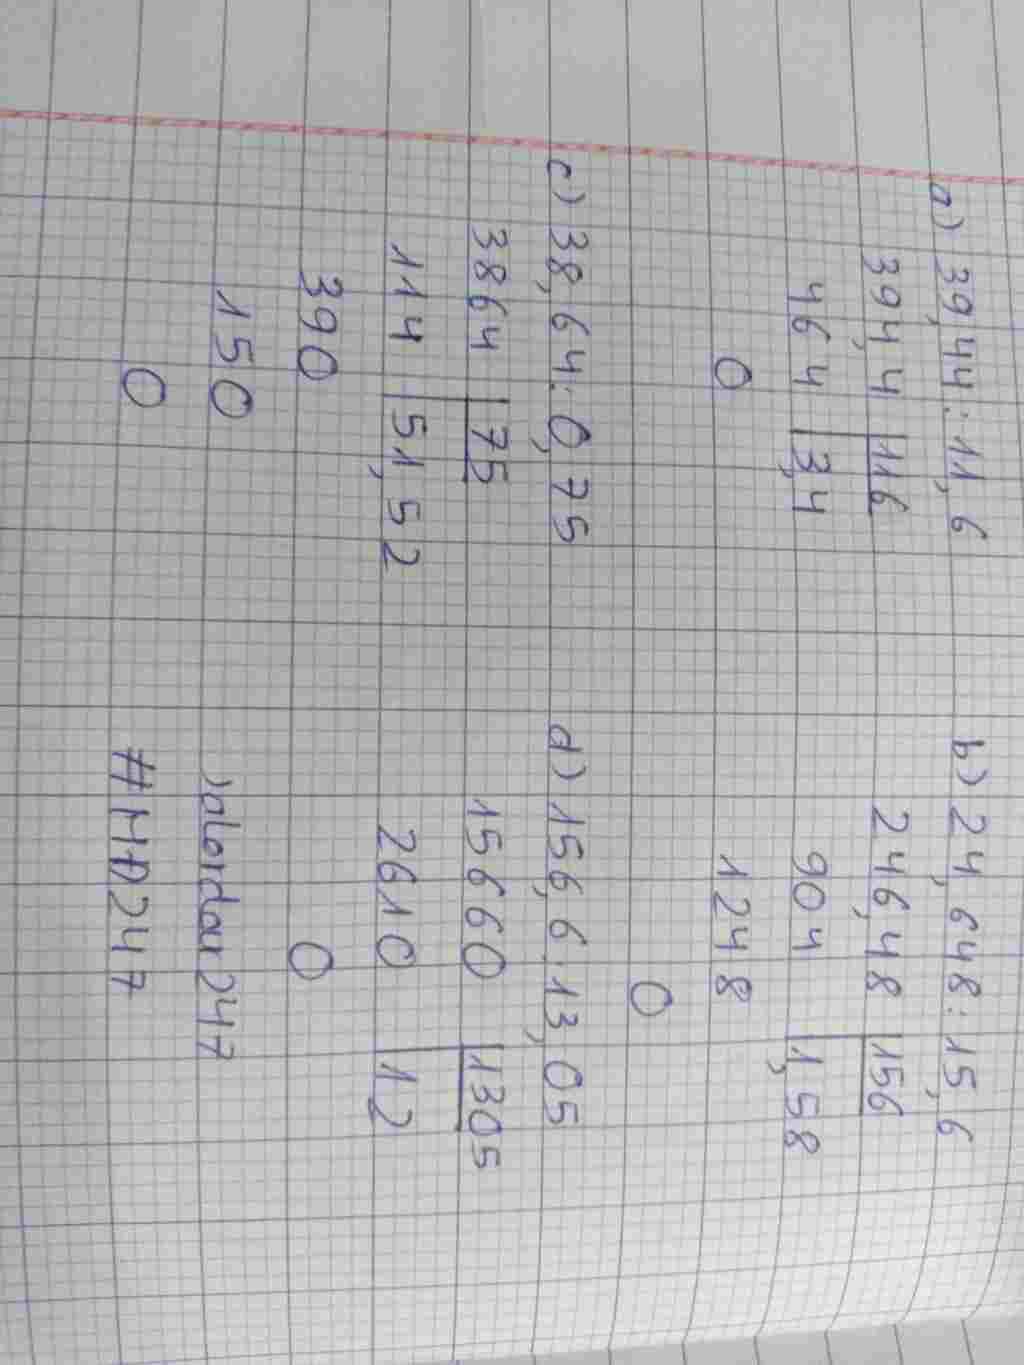 a) 39,44 : 11,6
394,4 116
464 3,4
0
b) 24,648 : 15,6
246,48 156
904 1,58
1248
0
c) 38,64 : 0,75
3864 75
114 51,52
390
150
0
d) 156,6 : 13,05
15660 1305
2610 12
0
#MD247